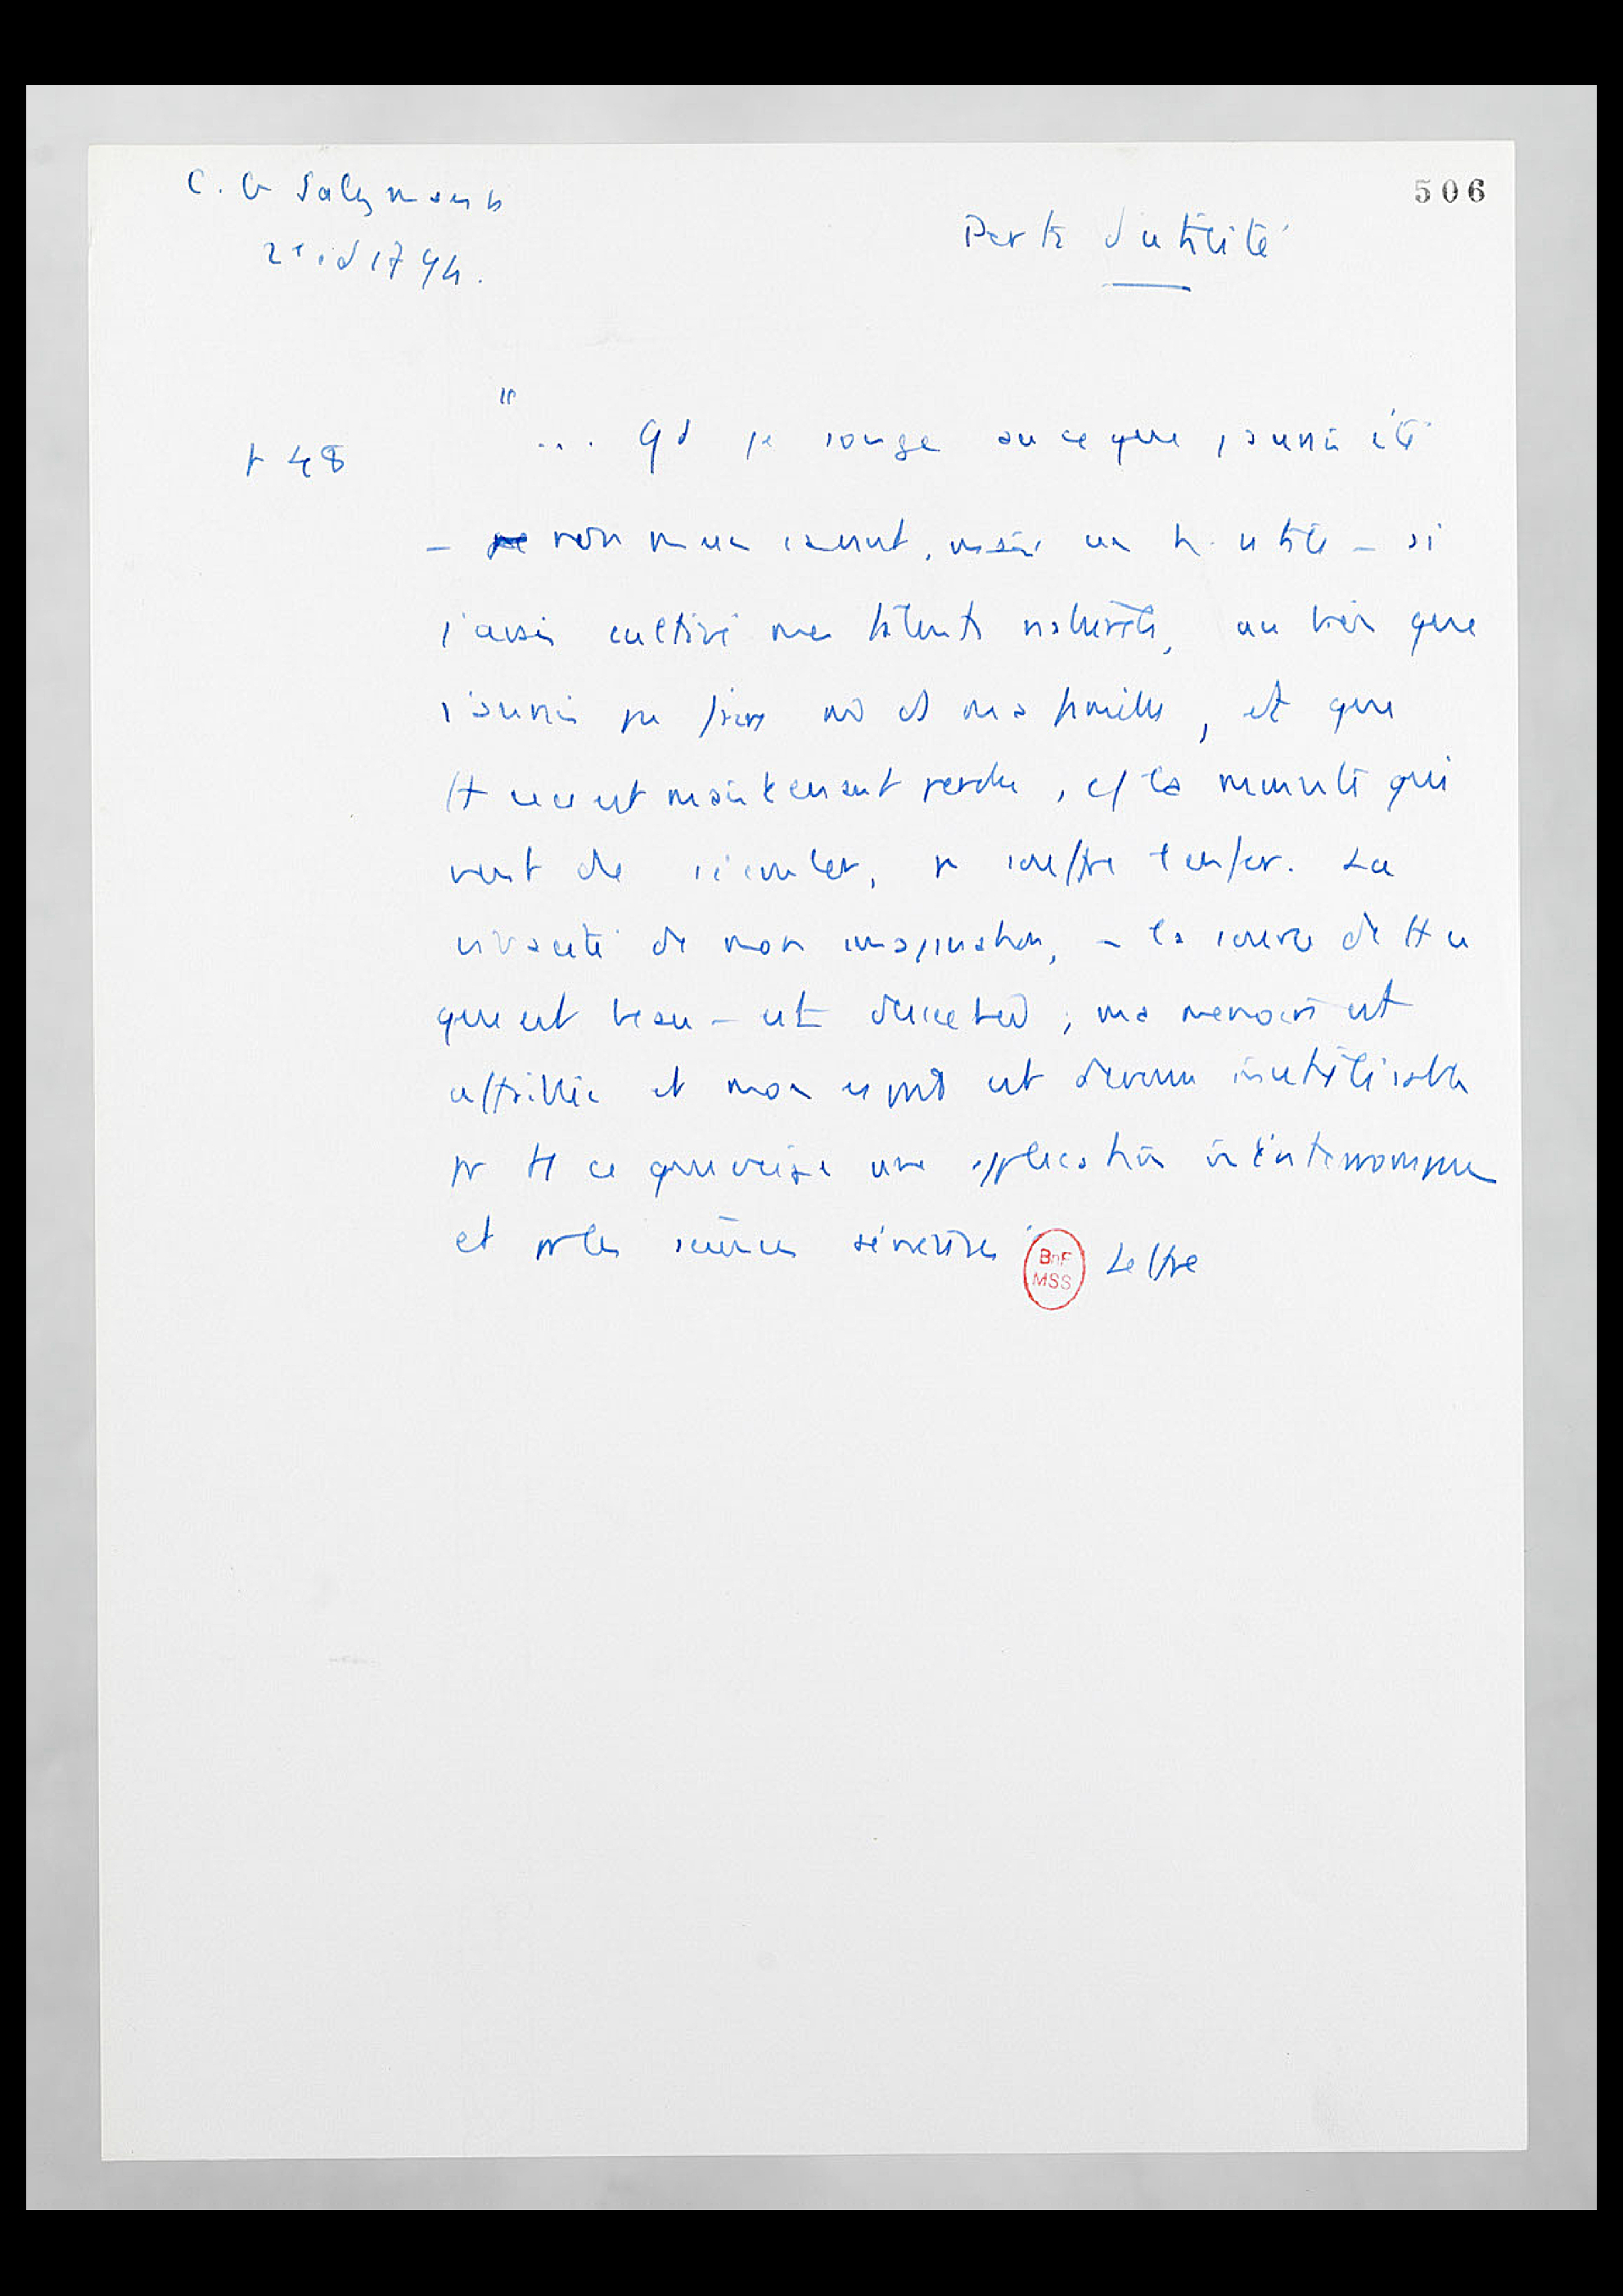 C. G Salzmann
2e éd 1794.
506
Perte d'utilité
p 48
"... Qd je songe au ce que j'aurais été
– non un savant, mais un h. utile – si
j'avais cultivé mes talents naturels, au bien que
j'aurais pu faire moi et ma famille, et que
tt cela est maintenant perdu, c/ la minute qui
vient de s'écouler, je souffre l'enfer. La
vivacité de mon imagination, – la source de tt ce
que est beau – est ; ma mémoire est
affaiblie et mon esprit est devenu inutilisable
pr tt ce qui exige une application ininterrompue
et pr les sciences sérieuses"
BnF
MSS
Lettre